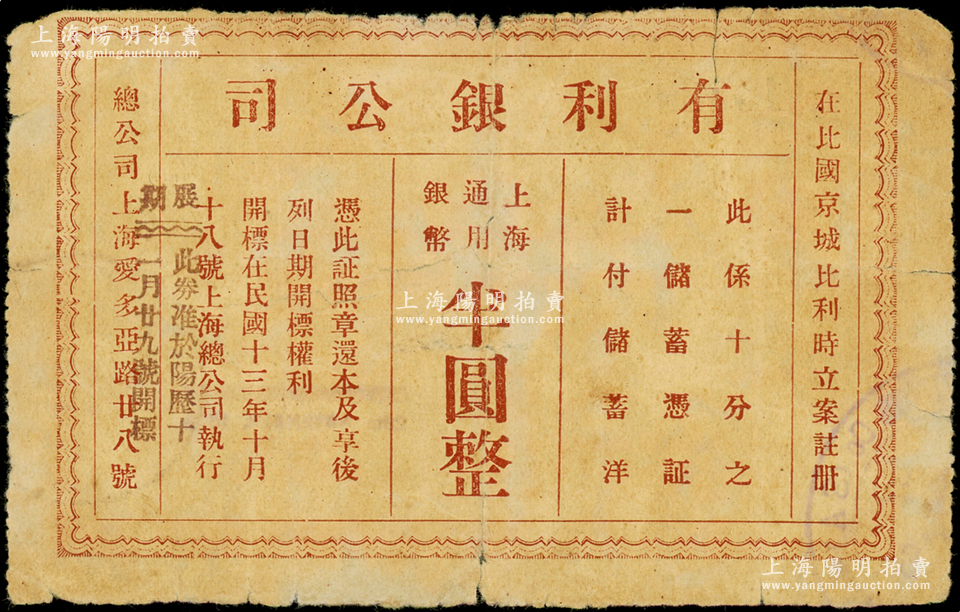 上海陽明拍賣
www.yangmingauction.com
有利銀公司
在比國京城比利時立案註冊
此係十分之
一儲蓄憑証
計付儲蓄洋
上海
通用
銀幣
半圓整
憑此証照章還本及享後
列日期開標權利
開標在民國十三年十月
十八號上海總公司執行
展期
此券准於陽歷十
一月廿九號開標
總公司上海愛多亞路廿八號
上海陽明拍賣
www.yangmingauction.com
上海陽明拍賣
www.yangmingauction.com